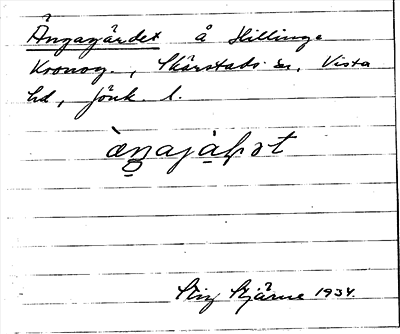 Ängagärdet å Hillinge
Kronog., Skärstads sn, Vista
hd, Jönk. l.
Stig Stjärne 1934.